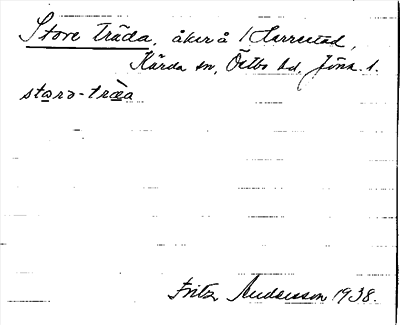 Store Träda, åker å Harrestad,
Kärda sn, Östbo hd, Jönk. l.
storə-træa
Fritz Andersson 1938.